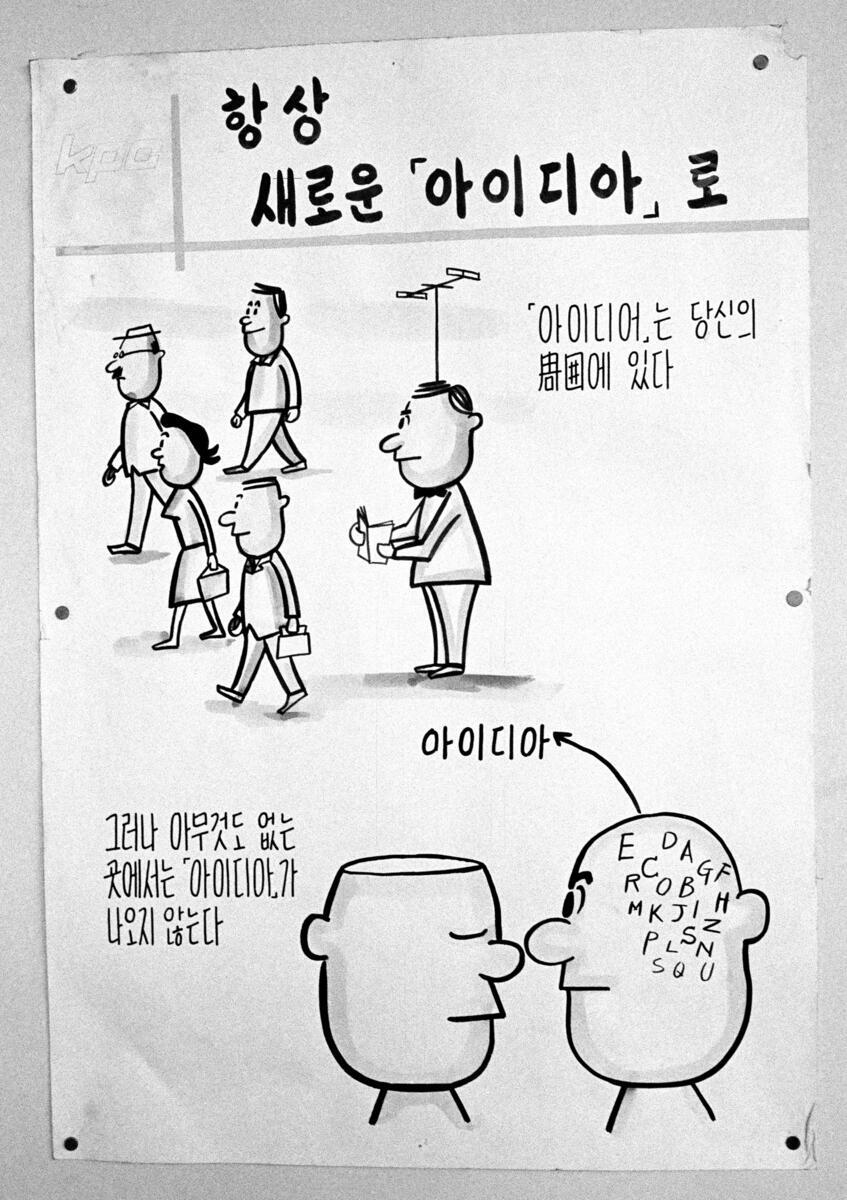 kpa
항상
새로운 「아이디아」로
「아이디어」는 당신의
周囲에 있다
아이디아
그러나 아무것도 없는
곳에서는 「아이디아」가
나오지 않는다
E D A
R C O B G F
M K J I H
P L S N Z
S Q U